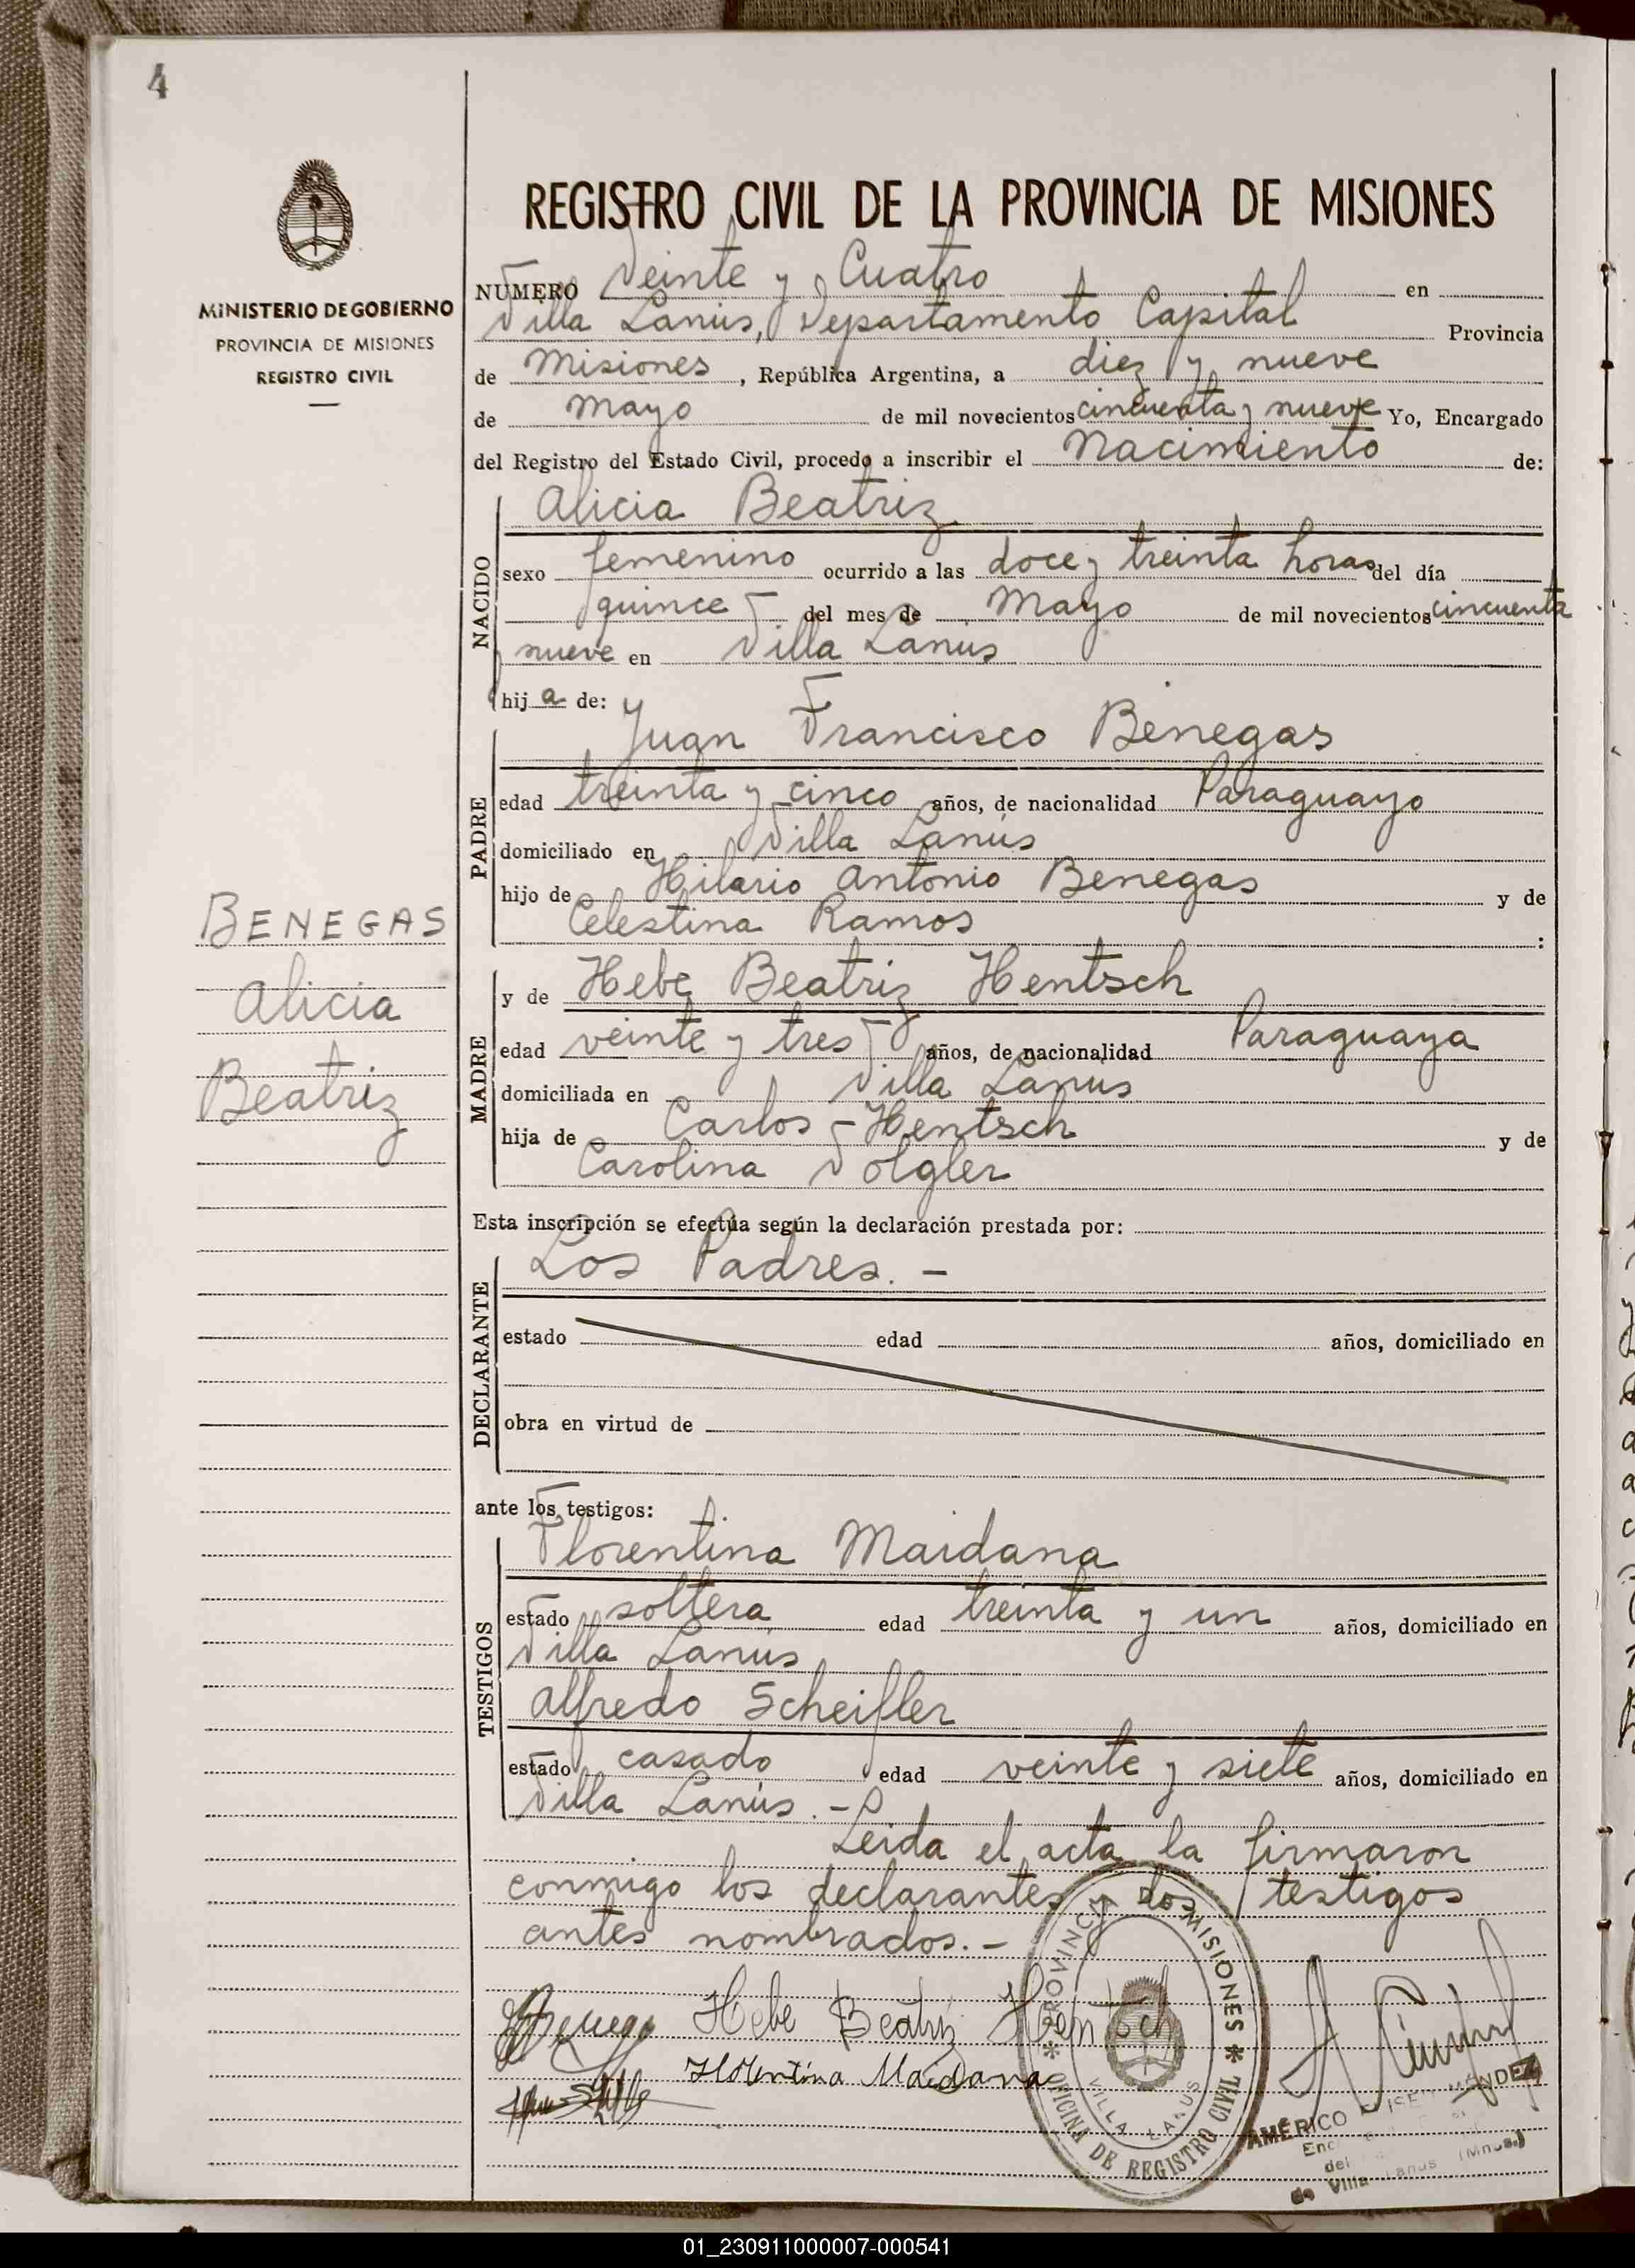 4
REGISTRO CIVIL DE LA PROVINCIA DE MISIONES
MINISTERIO DE GOBIERNO
PROVINCIA DE MISIONES
REGISTRO CIVIL
NUMERO Veinte y Cuatro en
Villa Lanús, Departamento Capital Provincia
de Misiones, República Argentina, a diez y nueve
de mayo de mil novecientos cincuenta y nueve Yo, Encargado
del Registro del Estado Civil, procedo a inscribir el Nacimiento de:
NACIDO
Alicia Beatriz
sexo femenino ocurrido a las doce y treinta horas del día
quince del mes de Mayo de mil novecientos cincuenta
y nueve en Villa Lanús
hija de:
PADRE
Juan Francisco Benegas
edad treinta y cinco años, de nacionalidad Paraguayo
domiciliado en Villa Lanús
hijo de Hilario Antonio Benegas y de
Celestina Ramos :
BENEGAS
Alicia
Beatriz
MADRE
y de Hebe Beatriz Hentsch
edad veinte y tres años, de nacionalidad Paraguaya
domiciliada en Villa Lanús
hija de Carlos - Hentsch y de
Carolina Volgler
Esta inscripción se efectúa según la declaración prestada por:
DECLARANTE
Los Padres. -
estado edad años, domiciliado en
obra en virtud de
ante los testigos:
TESTIGOS
Florentina Maidana
estado soltera edad treinta y un años, domiciliado en
Villa Lanús
Alfredo Scheifler
estado casado edad veinte y siete años, domiciliado en
Villa Lanús. -
Leida el acta la firmaron
conmigo los declarantes y los testigos
antes nombrados. -
Hebe Beatriz Hentsch
Florentina Maidana
PROVINCIA DE MISIONES
OFICINA DE REGISTRO CIVIL
VILLA LANUS
AMÉRICO MÉNDEZ
Enc
del
de Villa Lanus (Mnes.)
01_230911000007-000541